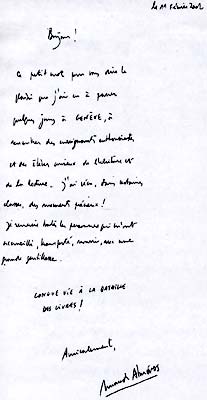 le 11 Février 2002
Bonjour !
Ce petit mot pour vous dire le
plaisir que j'ai eu à passer
quelques jours à GENÈVE, à
rencontrer des enseignants enthousiastes
et des élèves curieux de l'écriture et
de la lecture. J'ai vécu, dans certaines
classes, des moments précieux !
Je remercie toutes les personnes qui m'ont
accueilli, transporté, nourri, avec une
grande gentillesse.
LONGUE VIE À LA BATAILLE
DES LIVRES !
Amicalement,